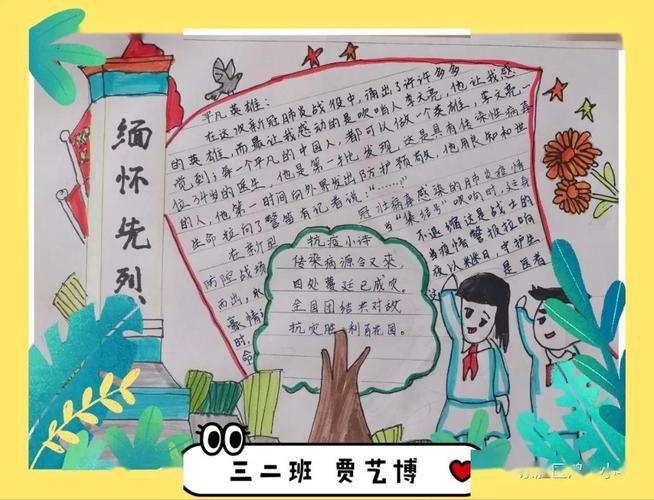 缅怀先烈
平凡英雄：
在这次新冠肺炎战役中，涌出了许许多多
的英雄，而最让我感动的是吹哨人李文亮，他让我感
觉到了每一个平凡的中国人，都可以做一个英雄，李文亮一
位34岁的医生，他是第一批发现，这是具有传染性病毒
的人，他第一时间向外界发出防护预
生命拉向了警笛有记者说："……"
在新型 冠壮病毒感染的肺炎疫情
防控战场 与"集结号"吹响时，挺身
而出， 不退缩这是战士的
豪情 当疫情警报拉响
时， 夜以继日，守护生
命 是医者
抗疫小诗
传染病源今又来，
四处蔓延已成灾。
全国团结共对敌
抗灾胜利百花园。
三二班 贾艺博